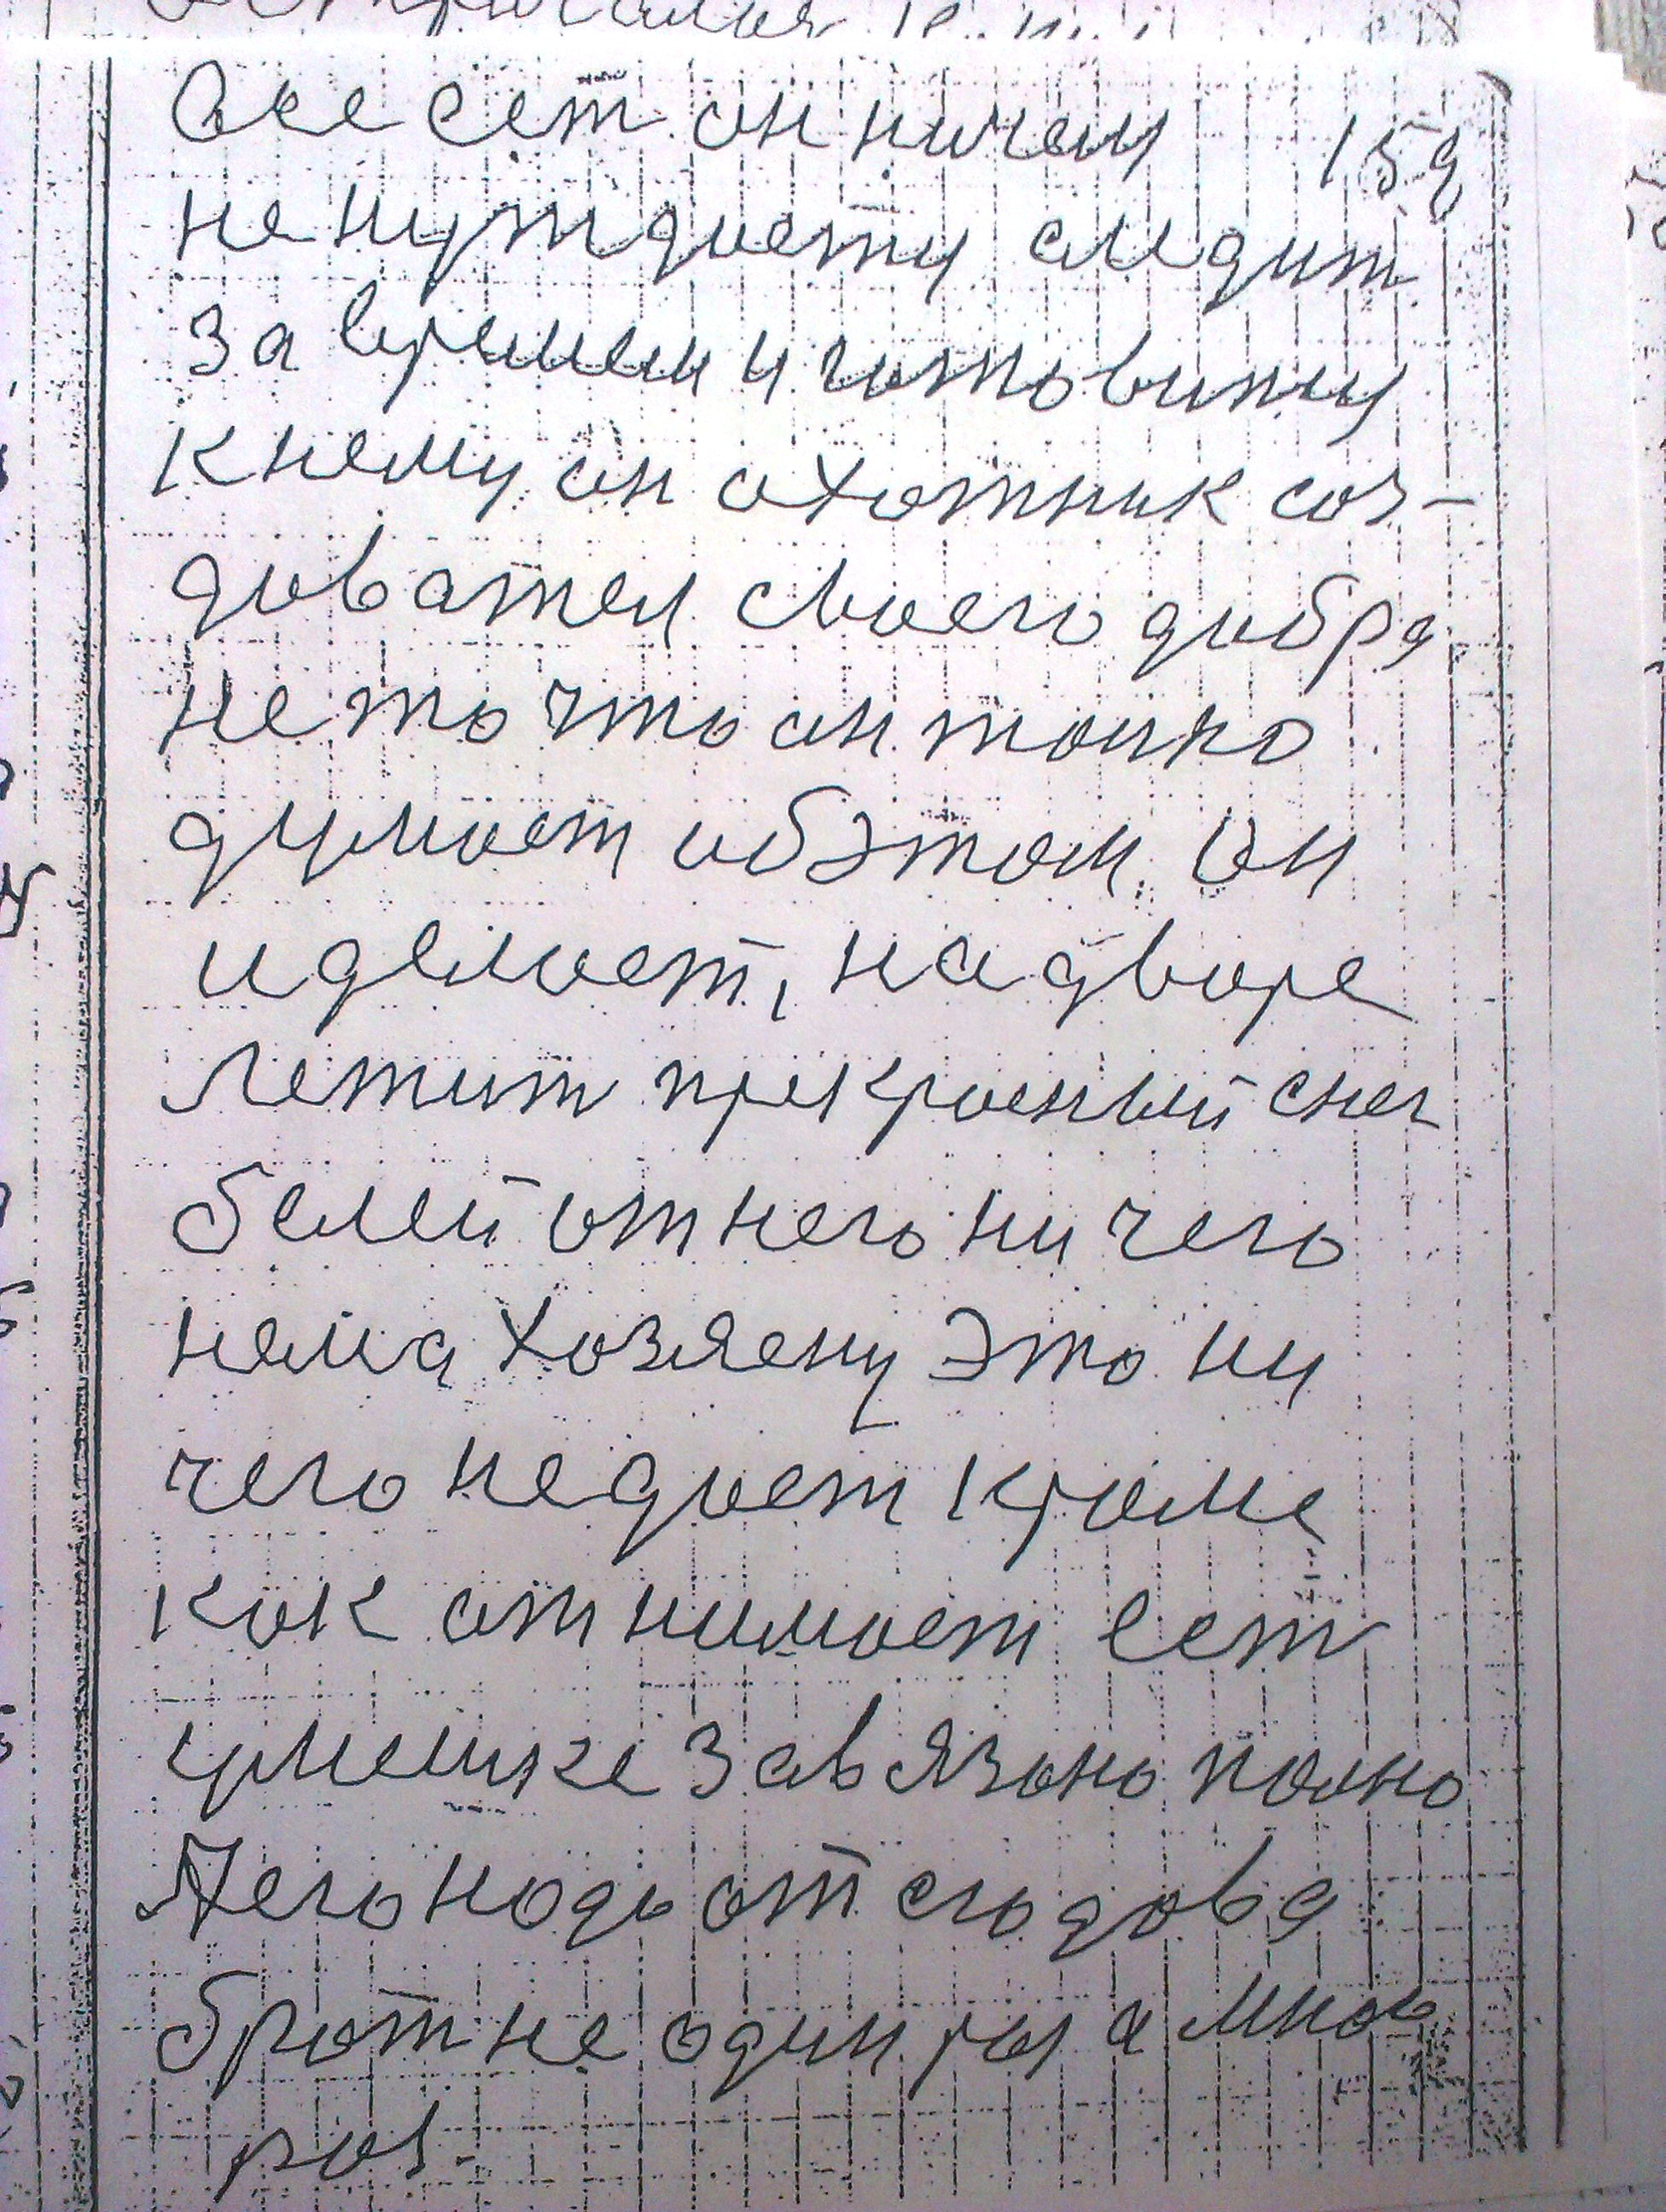 Все ест он ничем 159
не нуждаету следит
за времем и готовиту
к нему он охотник соз-
давател своего добра
не то что он толко
думает об этом он
и делает, на дворе
летит прекрасный снег
белей от него ни чего
нема хозяену это ни
чего не дает кроме
как отнимает ест
у мешке завязано полно
его нодо от сюдова
брат не один раз а много
раз.